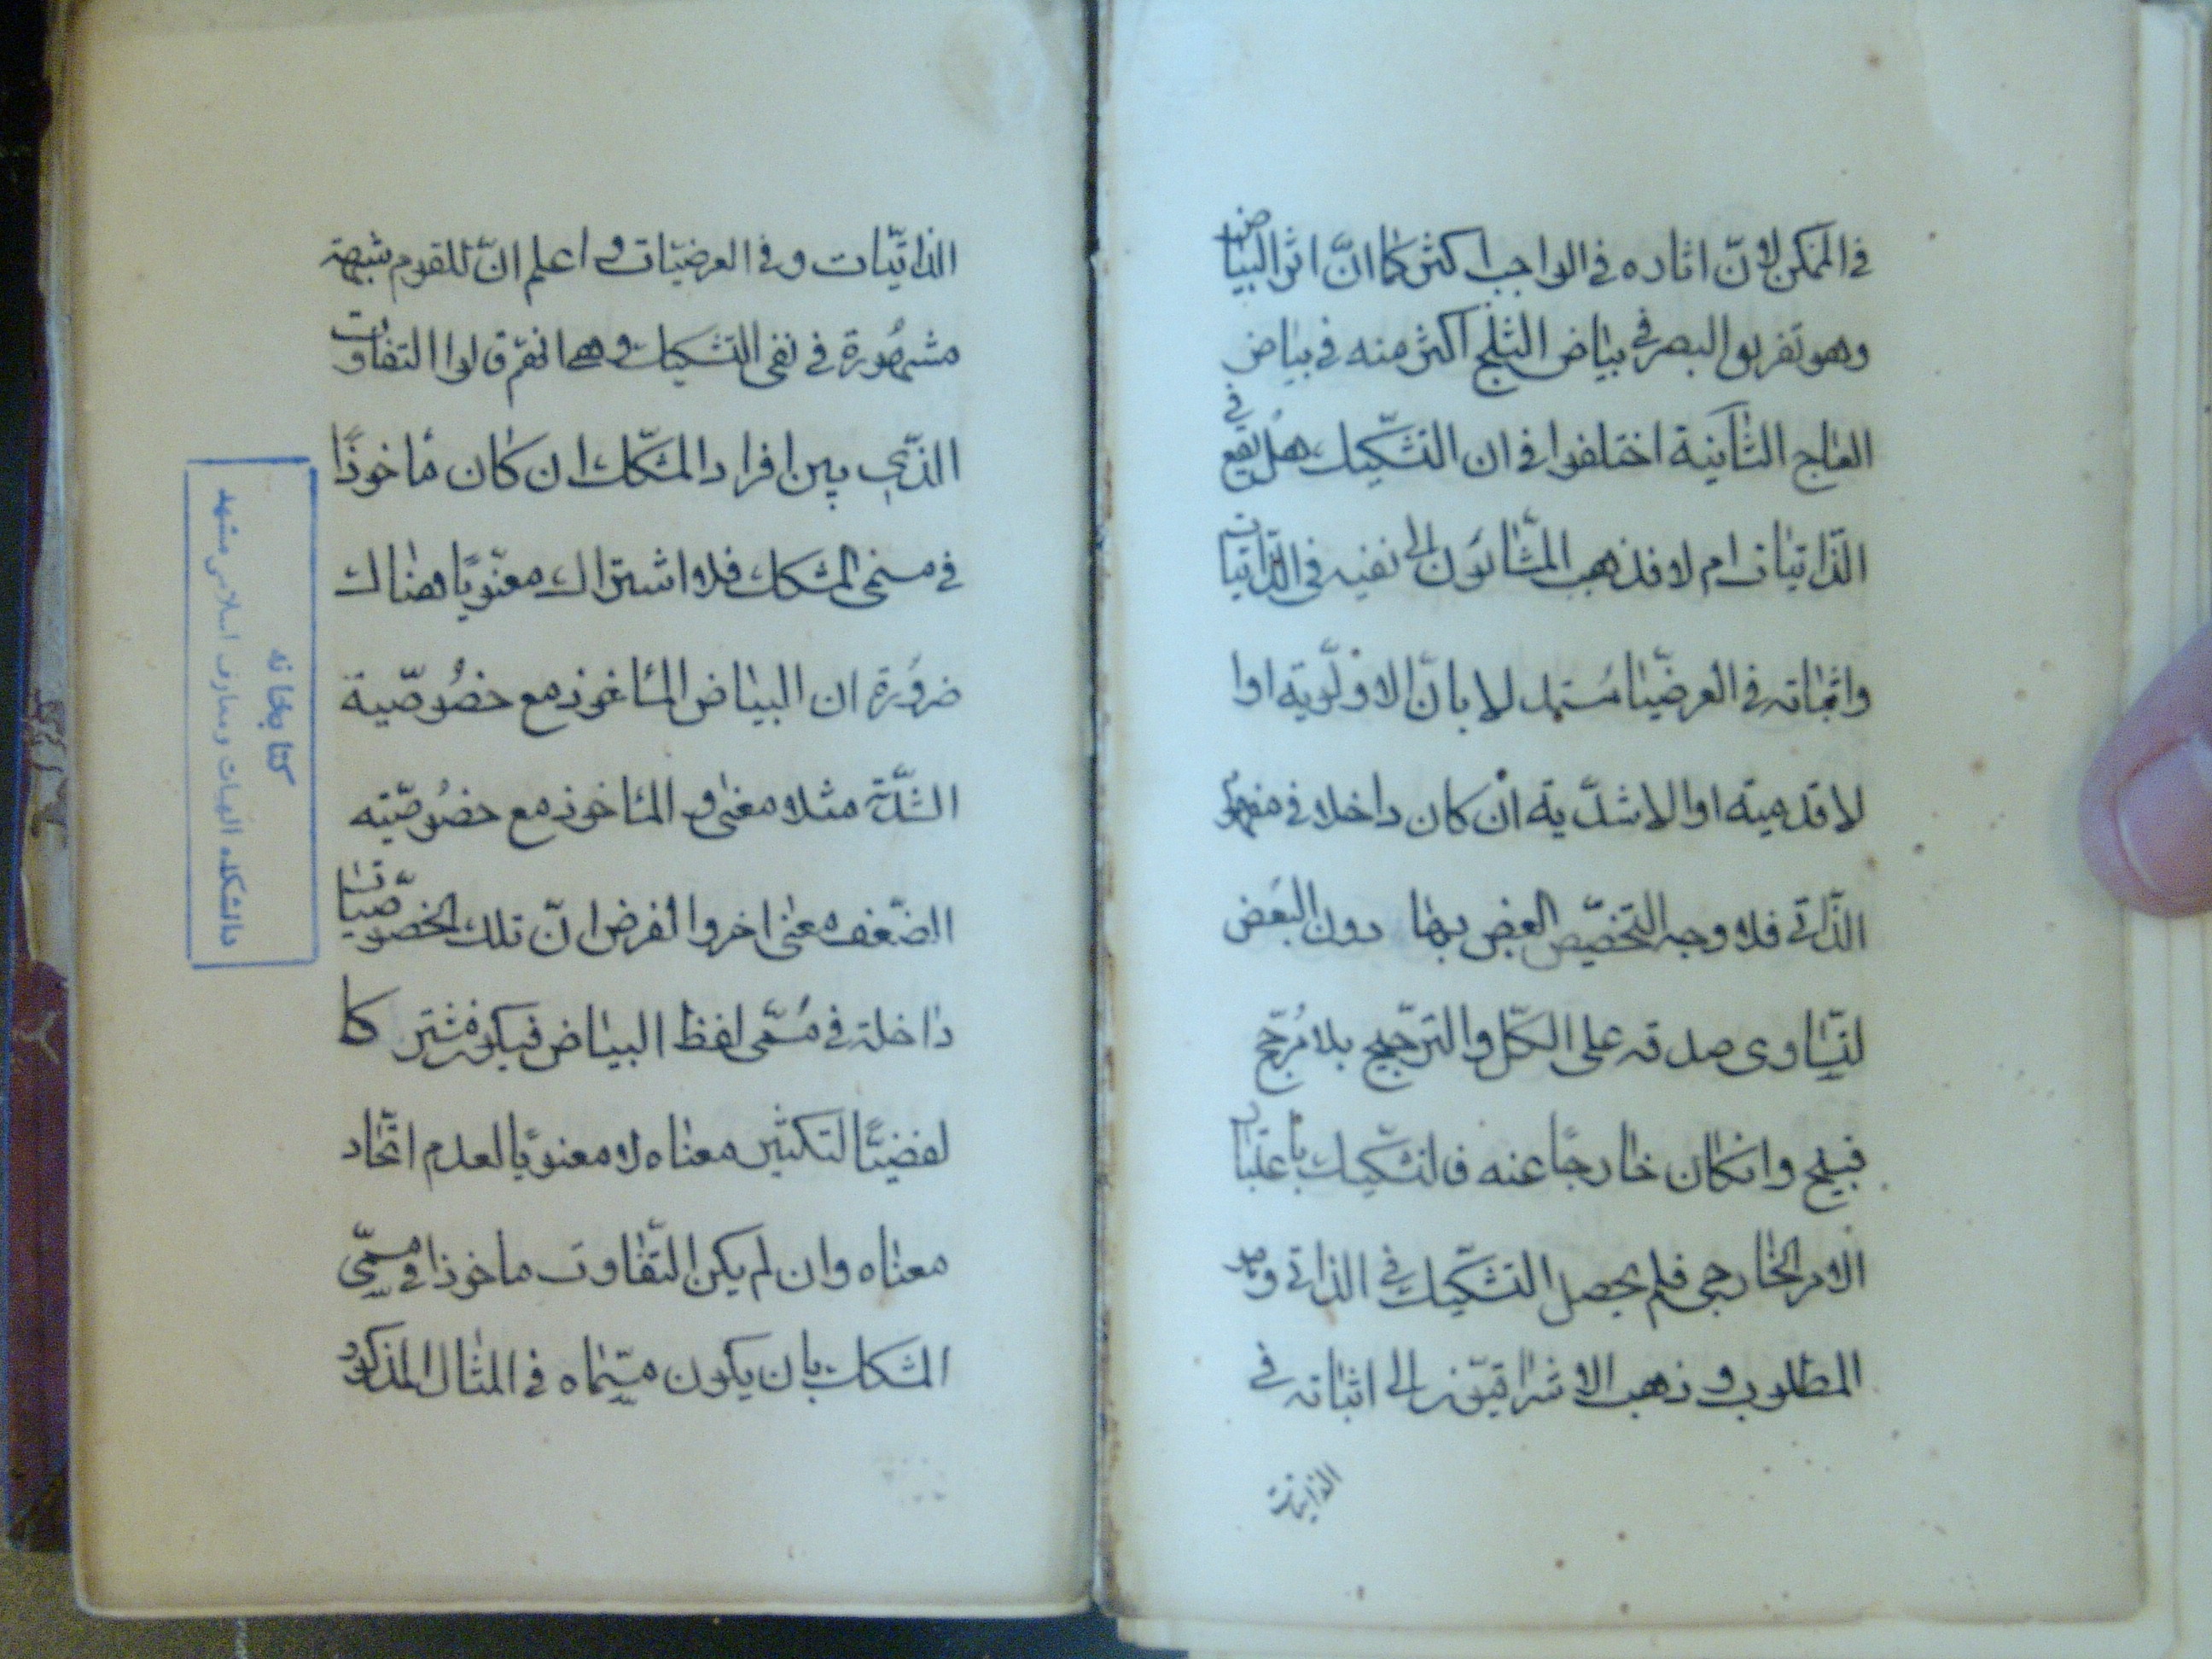 في الممكن لانّ اثاره في الواجب اكثر كما انّ اثر البياض
وهو تفريق البصر في بياض الثلج اكثر منه في بياض
العاج الثانية اختلفوا في ان التشكيك هل يقع في
الذّاتيات ام لا فذهب المشّائون الى نفيه في الذّاتيات
واثباته في العرضيّات مستدلا بانّ الاولويّة او ا
لاقدمية او الاشدّية ان كان داخلا في مفهوم
الذّاتي فلا وجه التخصيص البعض بها دون البعض
لتساوى صدقه على الكلّ والترجيح بلا مرجّح
قبيح وانكان خارجًا عنه فالتشكيك باعتبار
الامر الخارجي فلم يحصل التشكيك في الذاتي وهو
المطلوب وذهب الاشراقيّون الى اثباته في
الذاتيات
الذاتيّات وفي العرضيّات واعلم انّ للقوم شبهة
مشهورة في نفي التشكيك وهى انهم قالوا التفاوت
الذّي بين افراد المشكّك ان كان مأخوذًا
في مسمى المشكك فلا اشتراك معنويًا هناك
ضرورة ان البياض المأخوذ مع خصوصيّة
الشدّة مثلا معنى والمأخوذ مع خصوصيّته
الضّعف معنى اخر والفرض انّ تلك الخصوصيّات
داخلة في مسمّى لفظ البياض فيكون مشتركا
لفضيًّا لتكثير معناه لا معنويًا لعدم اتّحاد
معناه وان لم يكن التّفاوت ماخوذا في مسمّى
المشكك بان يكون مسمّاه في المثال المذكور
كتابخانه
دانشكده الهيات ومعارف اسلامى مشهد